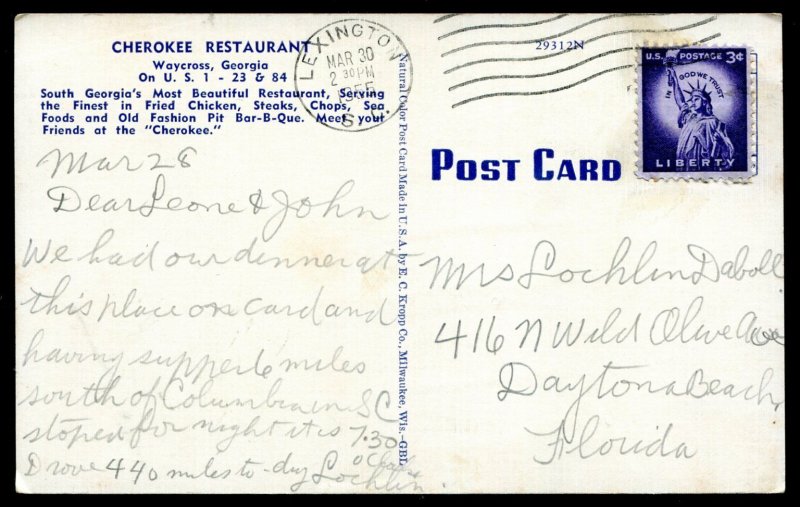 CHEROKEE RESTAURANT
Waycross, Georgia
On U. S. 1 - 23 & 84
South Georgia's Most Beautiful Restaurant, Serving
the Finest in Fried Chicken, Steaks, Chops, Sea
Foods and Old Fashion Pit Bar-B-Que. Meet your
Friends at the "Cherokee."
Mar 28
Dear Leone & John
We had our dinner at
this place on card and
having supper 6 miles
south of Columbia in S C
stoped for night it is 7.30
o clock
Drove 440 miles to-day Lochlin
Natural Color Post Card Made in U. S. A. by E. C. Kropp Co., Milwaukee, Wis.-GBL
LEXINGTON
MAR 30
2 30 PM
S.C.
29312N
U.S. POSTAGE 3¢
IN GOD WE TRUST
LIBERTY
POST CARD
Mrs Lochlin Daboll
416 N Wild Olive Ave
Daytona Beach,
Florida